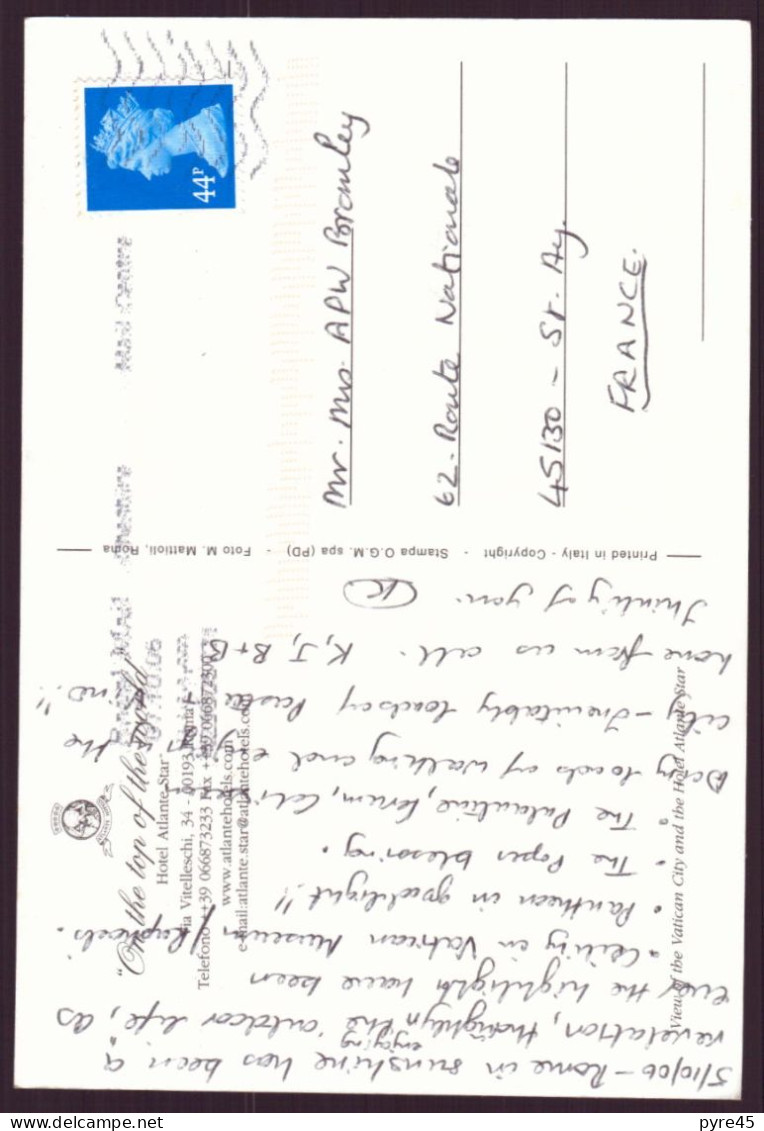 5/10/06 - Rome in sunshine has been a
revelation, thoroughly enjoying the 'outdoor life', as
ever the highlights have been
• Ceiling in Vatican Museum / Raphaels.
• Pantheon in good light!!
• The Popes blessing.
• The Palantine, Forum,
Doing loads of walking and enjoying the
city - Inevitably loads of Pasta
love from us all. K, J, B+B
Thinking of you.
"On the top of the world"
Hotel Atlante Star
Via Vitelleschi, 34 - 00193 Roma
Telefono ++39 066873233 Fax ++39 066872300
www.atlantehotels.com
e-mail:atlante.star@atlantehotels.com
View of the Vatican City and the Hotel Atlante Star
Printed in Italy - Copyright - Stampa O.G.M. spa (PD) - Foto M. Mattioli, Roma
44P
Mail Centre
.10.06
Mr. Mrs. APW Bromley
62 - Route Nationale
45130 - St. Ay.
FRANCE.
pyre45